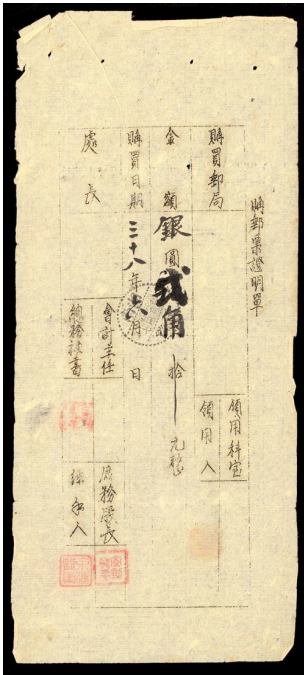 購郵票證明單
購買郵局
領用科室
領用人
金額 銀圓 貳角 拾 元整
購買日期 三十八年六月 日
處長
會計主任
總務秘書
庶務股長
經手人